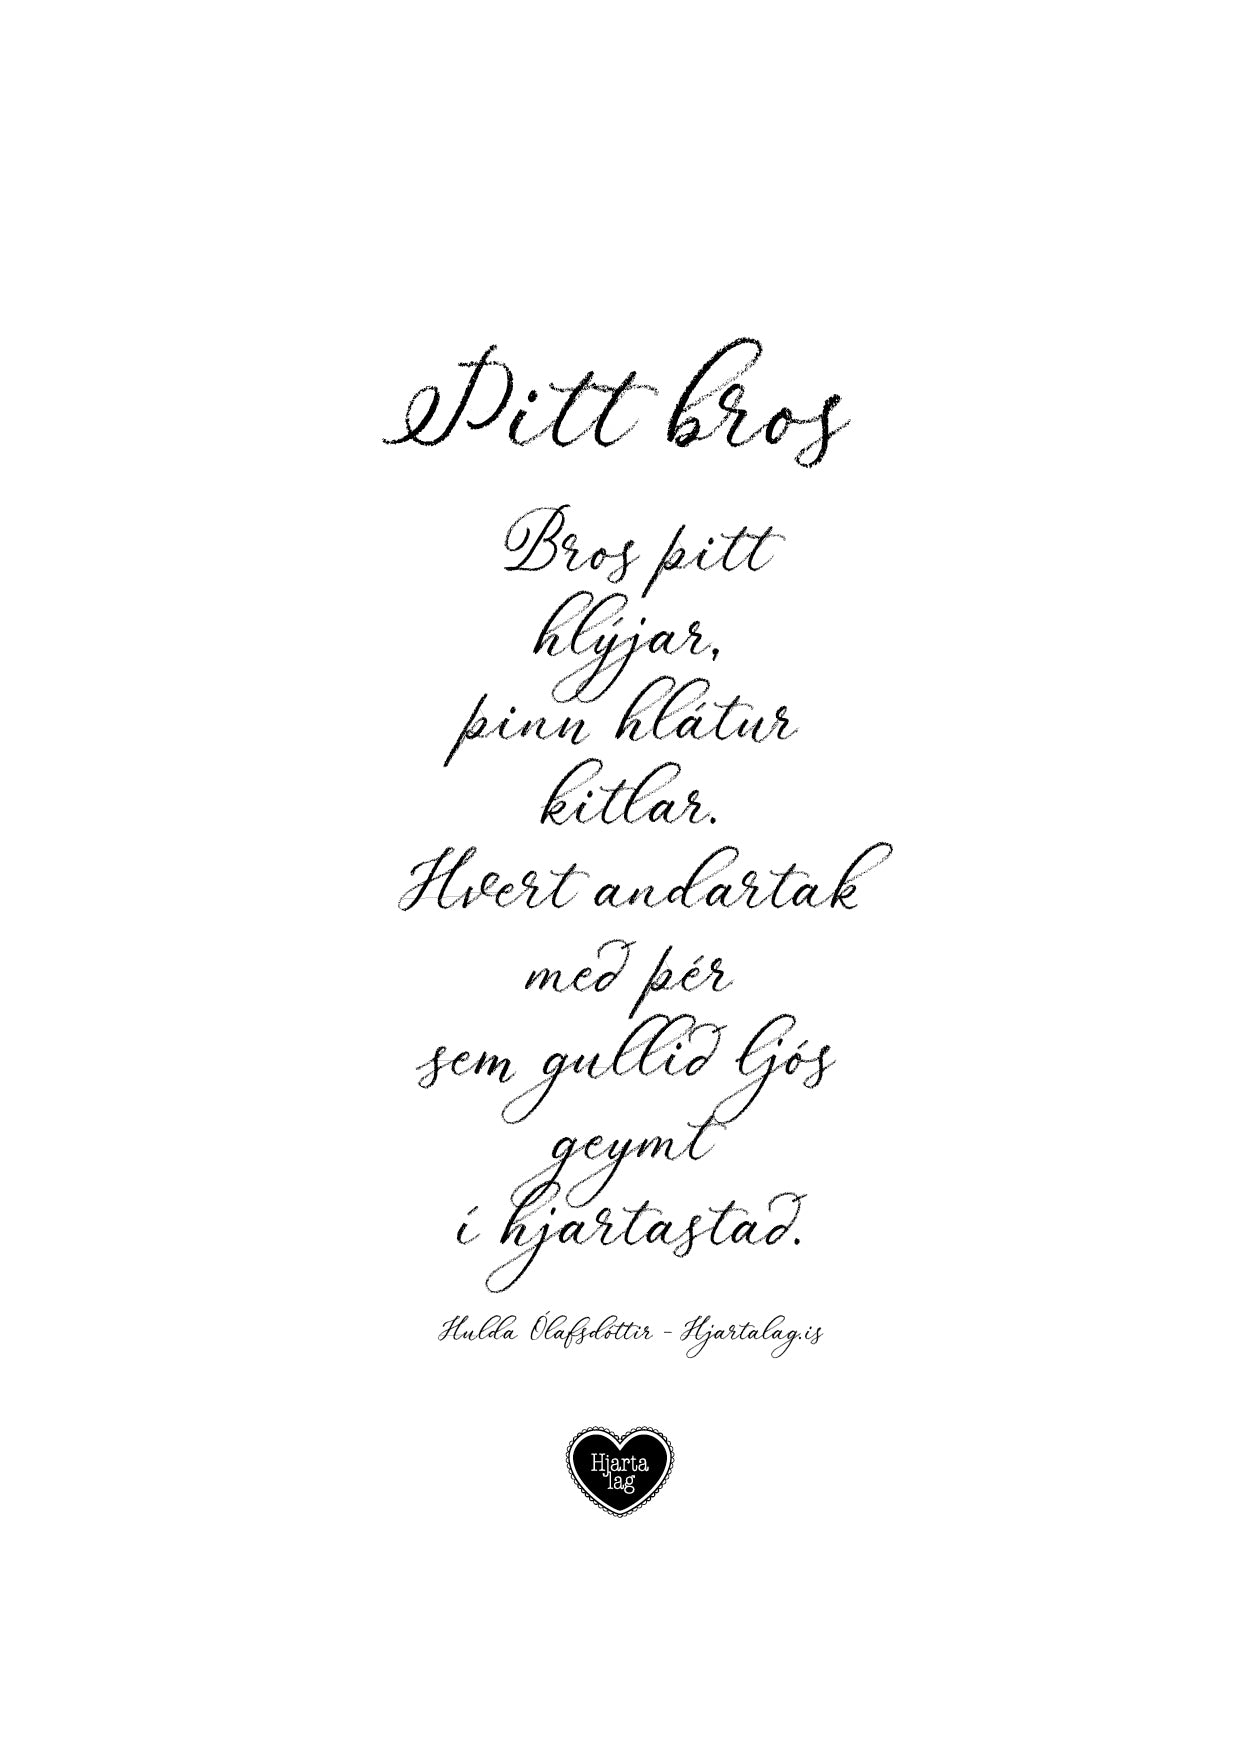 Þitt bros
Bros þitt
hlýjar,
þinn hlátur
kitlar.
Hvert andartak
með þér
sem gullið ljós
geymt
í hjartastað.
Hulda Ólafsdóttir - Hjartalag.is
Hjarta
lag